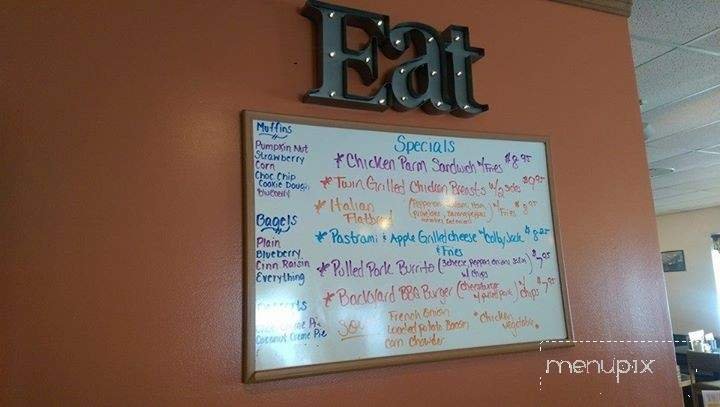 Eat
Muffins
Pumpkin Nut
Strawberry
Corn
Choc Chip
Cookie Dough
Blueberry
Bagels
Plain
Blueberry
Cinn Raisin
Everything
Creme Pie
Coconut Creme Pie
Specials
*Chicken Parm Sandwich w/Fries $8.95
*Twin Grilled Chicken Breasts w/2 sides $9.95
*Italian Flatbread
(Pepperoni, Salami, Ham,
provolone, banana peppers
w/ Fries $8.95
*Pastrami & Apple Grilled cheese w/Colby Jack $8.25
& Fries
*Pulled Pork Burrito (3cheese, Peppers, Onions, $7.95
w/ chips
*Backyard BBQ Burger (cheeseburger w/ pulled pork) w/ chips $7.95
French Onion
Loaded potato Bacon
Corn Chowder
*Chicken
vegetable
menupix